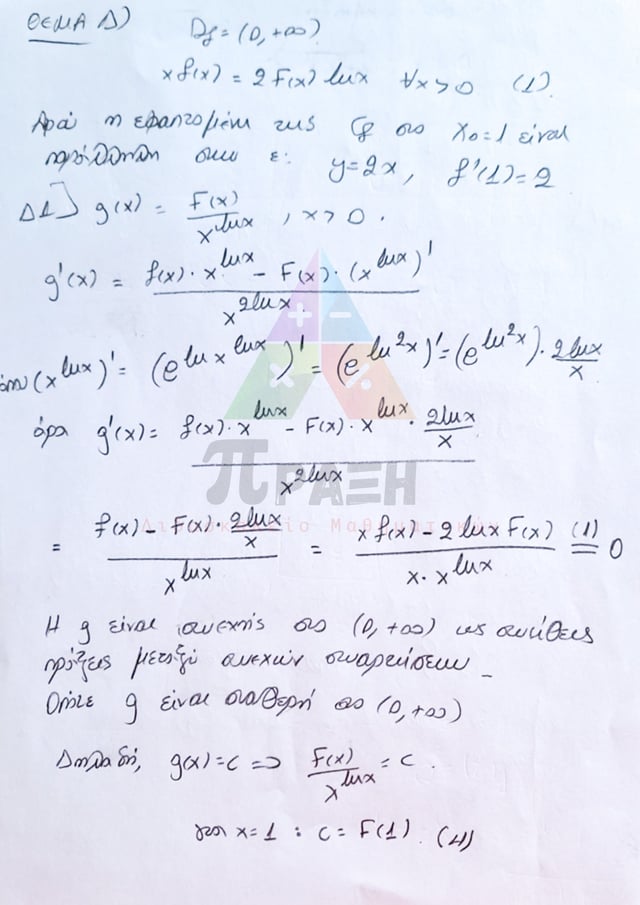 ΘΕΜΑ Δ) Df = (0, +∞)
xf(x) = 2F(x) lnx ∀x>0 (1)
Αφού η εφαπτομένη της Cf στο x₀=1 είναι
παράλληλη στην ε: y=2x, f'(1)=2
Δ1] g(x) = F(x)/x^lnx , x>0.
g'(x) = (f(x)·x^lnx - F(x)·(x^lnx)')/x^2lnx
όπου (x^lnx)' = (e^lnx^lnx)' = (e^ln²x)' = (e^ln²x)·2lnx/x
άρα g'(x) = (f(x)·x^lnx - F(x)·x^lnx·2lnx/x)/x^2lnx
πΡΑΞΗ
= (f(x) - F(x)·2lnx/x)/x^lnx = (xf(x) - 2lnxF(x))/(x·x^lnx) =(1) 0
Η g είναι συνεχής στο (0,+∞) ως συνήθεις
πράξεις μεταξύ συνεχών συναρτήσεων
Οπότε g είναι σταθερή στο (0,+∞)
Δηλαδή, g(x)=c => F(x)/x^lnx = c.
για x=1 : c=F(1). (4)